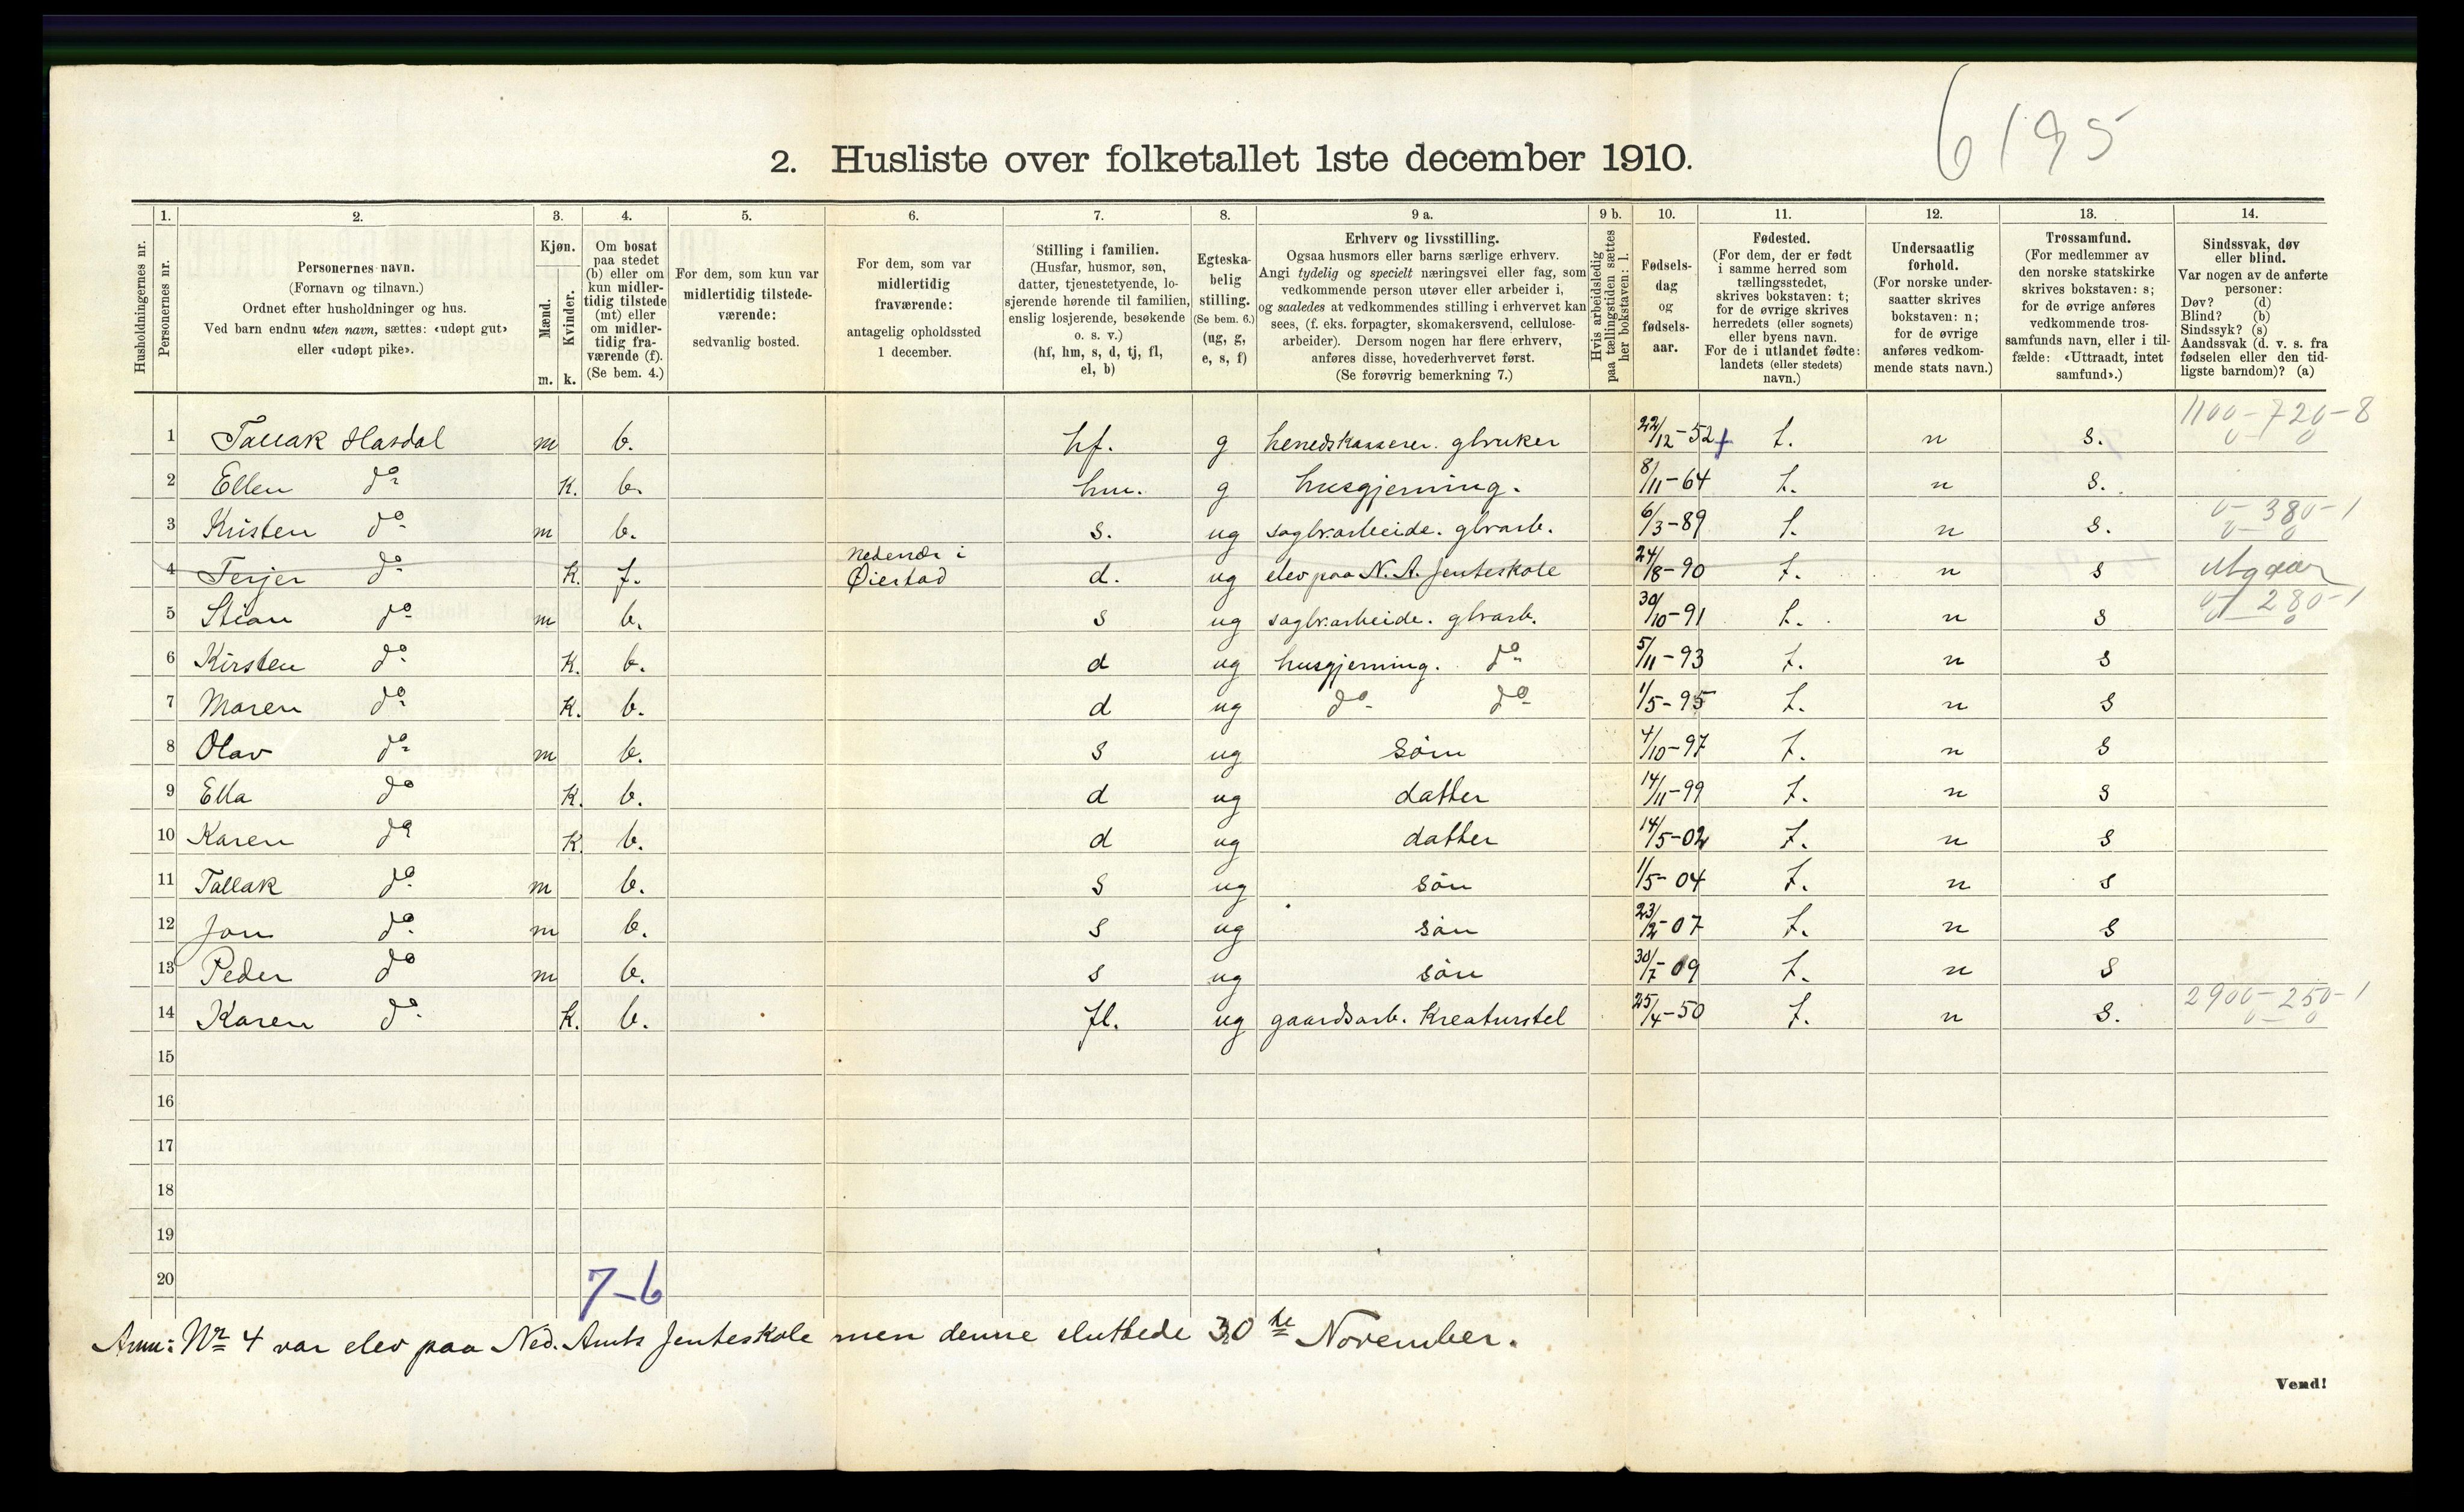 6195
2. Husliste over folketallet 1ste december 1910.
Husholdningernes nr.
1. Personernes nr.
2. Personernes navn.
(Fornavn og tilnavn.)
Ordnet efter husholdninger og hus.
Ved barn endnu uten navn, sættes: «udøpt gut»
eller «udøpt pike».
3. Kjøn.
Mænd. m.
Kvinder. k.
4. Om bosat
paa stedet
(b) eller om
kun midler-
tidig tilstede
(mt) eller
om midler-
tidig fra-
værende (f).
(Se bem. 4.)
5. For dem, som kun var
midlertidig tilstede-
værende:
sedvanlig bosted.
6. For dem, som var
midlertidig
fraværende:
antagelig opholdssted
1 december.
7. Stilling i familien.
(Husfar, husmor, søn,
datter, tjenestetyende, lo-
sjerende hørende til familien,
enslig losjerende, besøkende
o. s. v.)
(hf, hm, s, d, tj, fl,
el, b)
8. Egteska-
belig
stilling.
(Se bem. 6.)
(ug, g,
e, s, f)
9 a. Erhverv og livsstilling.
Ogsaa husmors eller barns særlige erhverv.
Angi tydelig og specielt næringsvei eller fag, som
vedkommende person utøver eller arbeider i,
og saaledes at vedkommendes stilling i erhvervet kan
sees, (f. eks. forpagter, skomakersvend, cellulose-
arbeider). Dersom nogen har flere erhverv,
anføres disse, hovederhvervet først.
(Se forøvrig bemerkning 7.)
9 b. Hvis arbeidsledig
paa tællingstiden sættes
her bokstaven: l.
10. Fødsels-
dag
og
fødsels-
aar.
11. Fødested.
(For dem, der er født
i samme herred som
tællingsstedet,
skrives bokstaven: t;
for de øvrige skrives
herredets (eller sognets)
eller byens navn.
For de i utlandet fødte:
landets (eller stedets)
navn.)
12. Undersaatlig
forhold.
(For norske under-
saatter skrives
bokstaven: n;
for de øvrige
anføres vedkom-
mende stats navn.)
13. Trossamfund.
(For medlemmer av
den norske statskirke
skrives bokstaven: s;
for de øvrige anføres
vedkommende tros-
samfunds navn, eller i til-
fælde: «Uttraadt, intet
samfund».)
14. Sindssvak, døv
eller blind.
Var nogen av de anførte
personer:
Døv? (d)
Blind? (b)
Sindssyk? (s)
Aandssvak (d. v. s. fra
fødselen eller den tid-
ligste barndom)? (a)
1 Tallak Hasdal m b. hf. g herredskasserer. gbruker 22/12-52 t. n s. 1100-720-8
2 Ellen do k. b. hm. g husgjerning. 8/11-64 t. n s.
3 Kristen do m b. s. ug sagbr.arbeide. gbrarb. 6/3-89 t. n s. 0-380-1
4 Terjer do k. f. Nedenæs i Øiestad d. ug elev paa N. A. Jenteskole 24/8-90 t. n s utgaar
5 Stian do m b. s ug sagbr.arbeide. gbrarb. 30/10-91 t. n s 0-280-1
6 Kirsten do k. b. d ug husgjerning. do 5/11-93 t. n s
7 Maren do k. b. d ug do do 1/5-95 t. n s
8 Olav do m b. s ug søm 4/10-97 t. n s
9 Ella do k. b. d ug datter 14/11-99 t. n s
10 Karen do k. b. d ug datter 14/5-02 t. n s
11 Tallak do m b. s ug søn 1/5-04 t. n s
12 Jon do m b. s ug søn 23/12-07 t. n s
13 Peder do m b. s ug søn 30/7-09 t. n s
14 Karen do k. b. fl. ug gaardsarb. Kreaturstel 25/4-50 t. n s. 2900-250-1
15
16
17
18
19
20
7-6
Anm: Nr 4 var elev paa Ned. Amts Jenteskole men denne sluttede 30te November.
Vend!